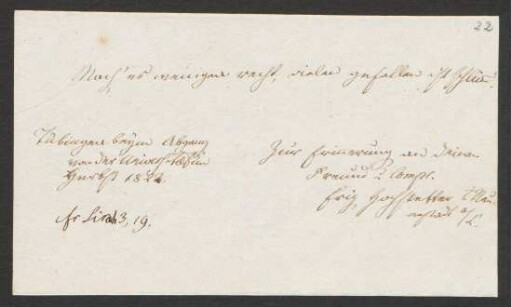 22
Mach' es wenigen recht, vielen gefallen ist schlimm.
Tübingen beym Abgang
von der Universität im
Herbst 1822.
Zur Erinnerung an deinen
Freund u. Comp.
Hochstetter
3, 19.